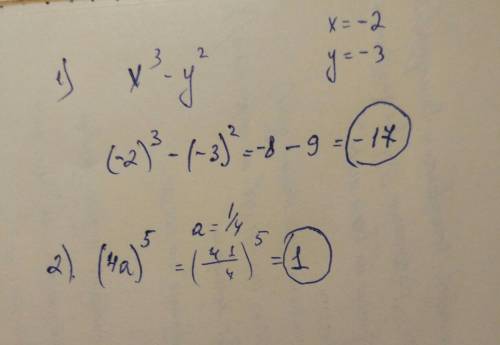 1) x³ - y²
x = -2
y = -3
(-2)³ - (-3)² = -8 - 9 = -17
a = 1/4
2). (4a)⁵ = (4 1/4)⁵ = 1